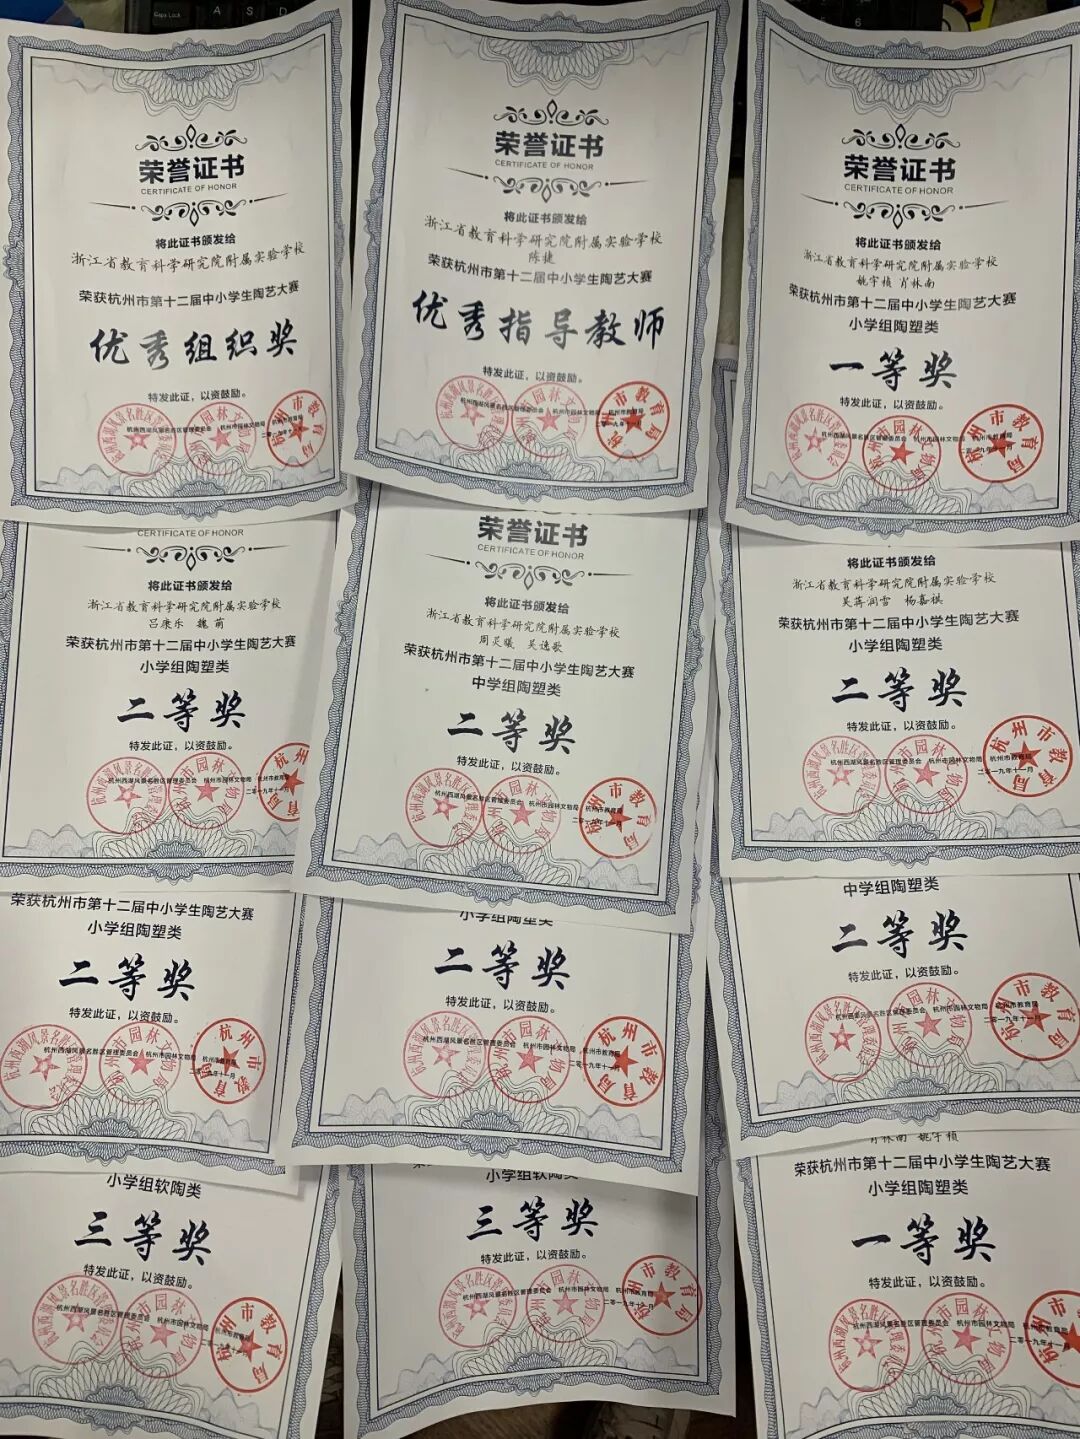 荣誉证书
CERTIFICATE OF HONOR
将此证书颁发给
浙江省教育科学研究院附属实验学校
荣获杭州市第十二届中小学生陶艺大赛
优秀组织奖
特发此证，以资鼓励。
杭州西湖风景名胜区管理委员会 杭州市园林文物局 杭州市教育局
荣誉证书
CERTIFICATE OF HONOR
将此证书颁发给
浙江省教育科学研究院附属实验学校
陈捷
荣获杭州市第十二届中小学生陶艺大赛
优秀指导教师
特发此证，以资鼓励。
杭州西湖风景名胜区管理委员会 杭州市园林文物局 杭州市教育局
二零一九年十一月
荣誉证书
CERTIFICATE OF HONOR
将此证书颁发给
浙江省教育科学研究院附属实验学校
姚宇桢 肖林南
荣获杭州市第十二届中小学生陶艺大赛
小学组陶塑类
一等奖
特发此证，以资鼓励。
杭州西湖风景名胜区管理委员会 杭州市园林文物局 杭州市教育局
二零一九年十一月
CERTIFICATE OF HONOR
将此证书颁发给
浙江省教育科学研究院附属实验学校
吕康乐 魏萌
荣获杭州市第十二届中小学生陶艺大赛
小学组陶塑类
二等奖
特发此证，以资鼓励。
杭州西湖风景名胜区管理委员会 杭州市园林文物局 杭州市教育局
二零一九年十一月
荣誉证书
CERTIFICATE OF HONOR
将此证书颁发给
浙江省教育科学研究院附属实验学校
周灵曦 吴逸歌
荣获杭州市第十二届中小学生陶艺大赛
中学组陶塑类
二等奖
特发此证，以资鼓励。
杭州西湖风景名胜区管理委员会 杭州市园林文物局 杭州市教育局
二零一九年十一月
将此证书颁发给
浙江省教育科学研究院附属实验学校
吴蒋润雪 杨嘉祺
荣获杭州市第十二届中小学生陶艺大赛
小学组陶塑类
二等奖
特发此证，以资鼓励。
杭州西湖风景名胜区管理委员会 杭州市园林文物局 杭州市教育局
二零一九年十一月
荣获杭州市第十二届中小学生陶艺大赛
小学组陶塑类
二等奖
特发此证，以资鼓励。
杭州西湖风景名胜区管理委员会 杭州市园林文物局 杭州市教育局
二零一九年十一月
小学组陶塑类
二等奖
特发此证，以资鼓励。
杭州西湖风景名胜区管理委员会 杭州市园林文物局 杭州市教育局
二零一九年十一月
中学组陶塑类
二等奖
特发此证，以资鼓励。
杭州西湖风景名胜区管理委员会 杭州市园林文物局 杭州市教育局
二零一九年十一月
小学组软陶类
三等奖
特发此证，以资鼓励。
杭州西湖风景名胜区管理委员会 杭州市园林文物局 杭州市教育局
二零一九年十一月
小学组软陶类
三等奖
特发此证，以资鼓励。
杭州西湖风景名胜区管理委员会 杭州市园林文物局 杭州市教育局
二零一九年十一月
肖林南 姚宇桢
荣获杭州市第十二届中小学生陶艺大赛
小学组陶塑类
一等奖
特发此证，以资鼓励。
杭州西湖风景名胜区管理委员会 杭州市园林文物局 杭州市教育局
二零一九年十一月